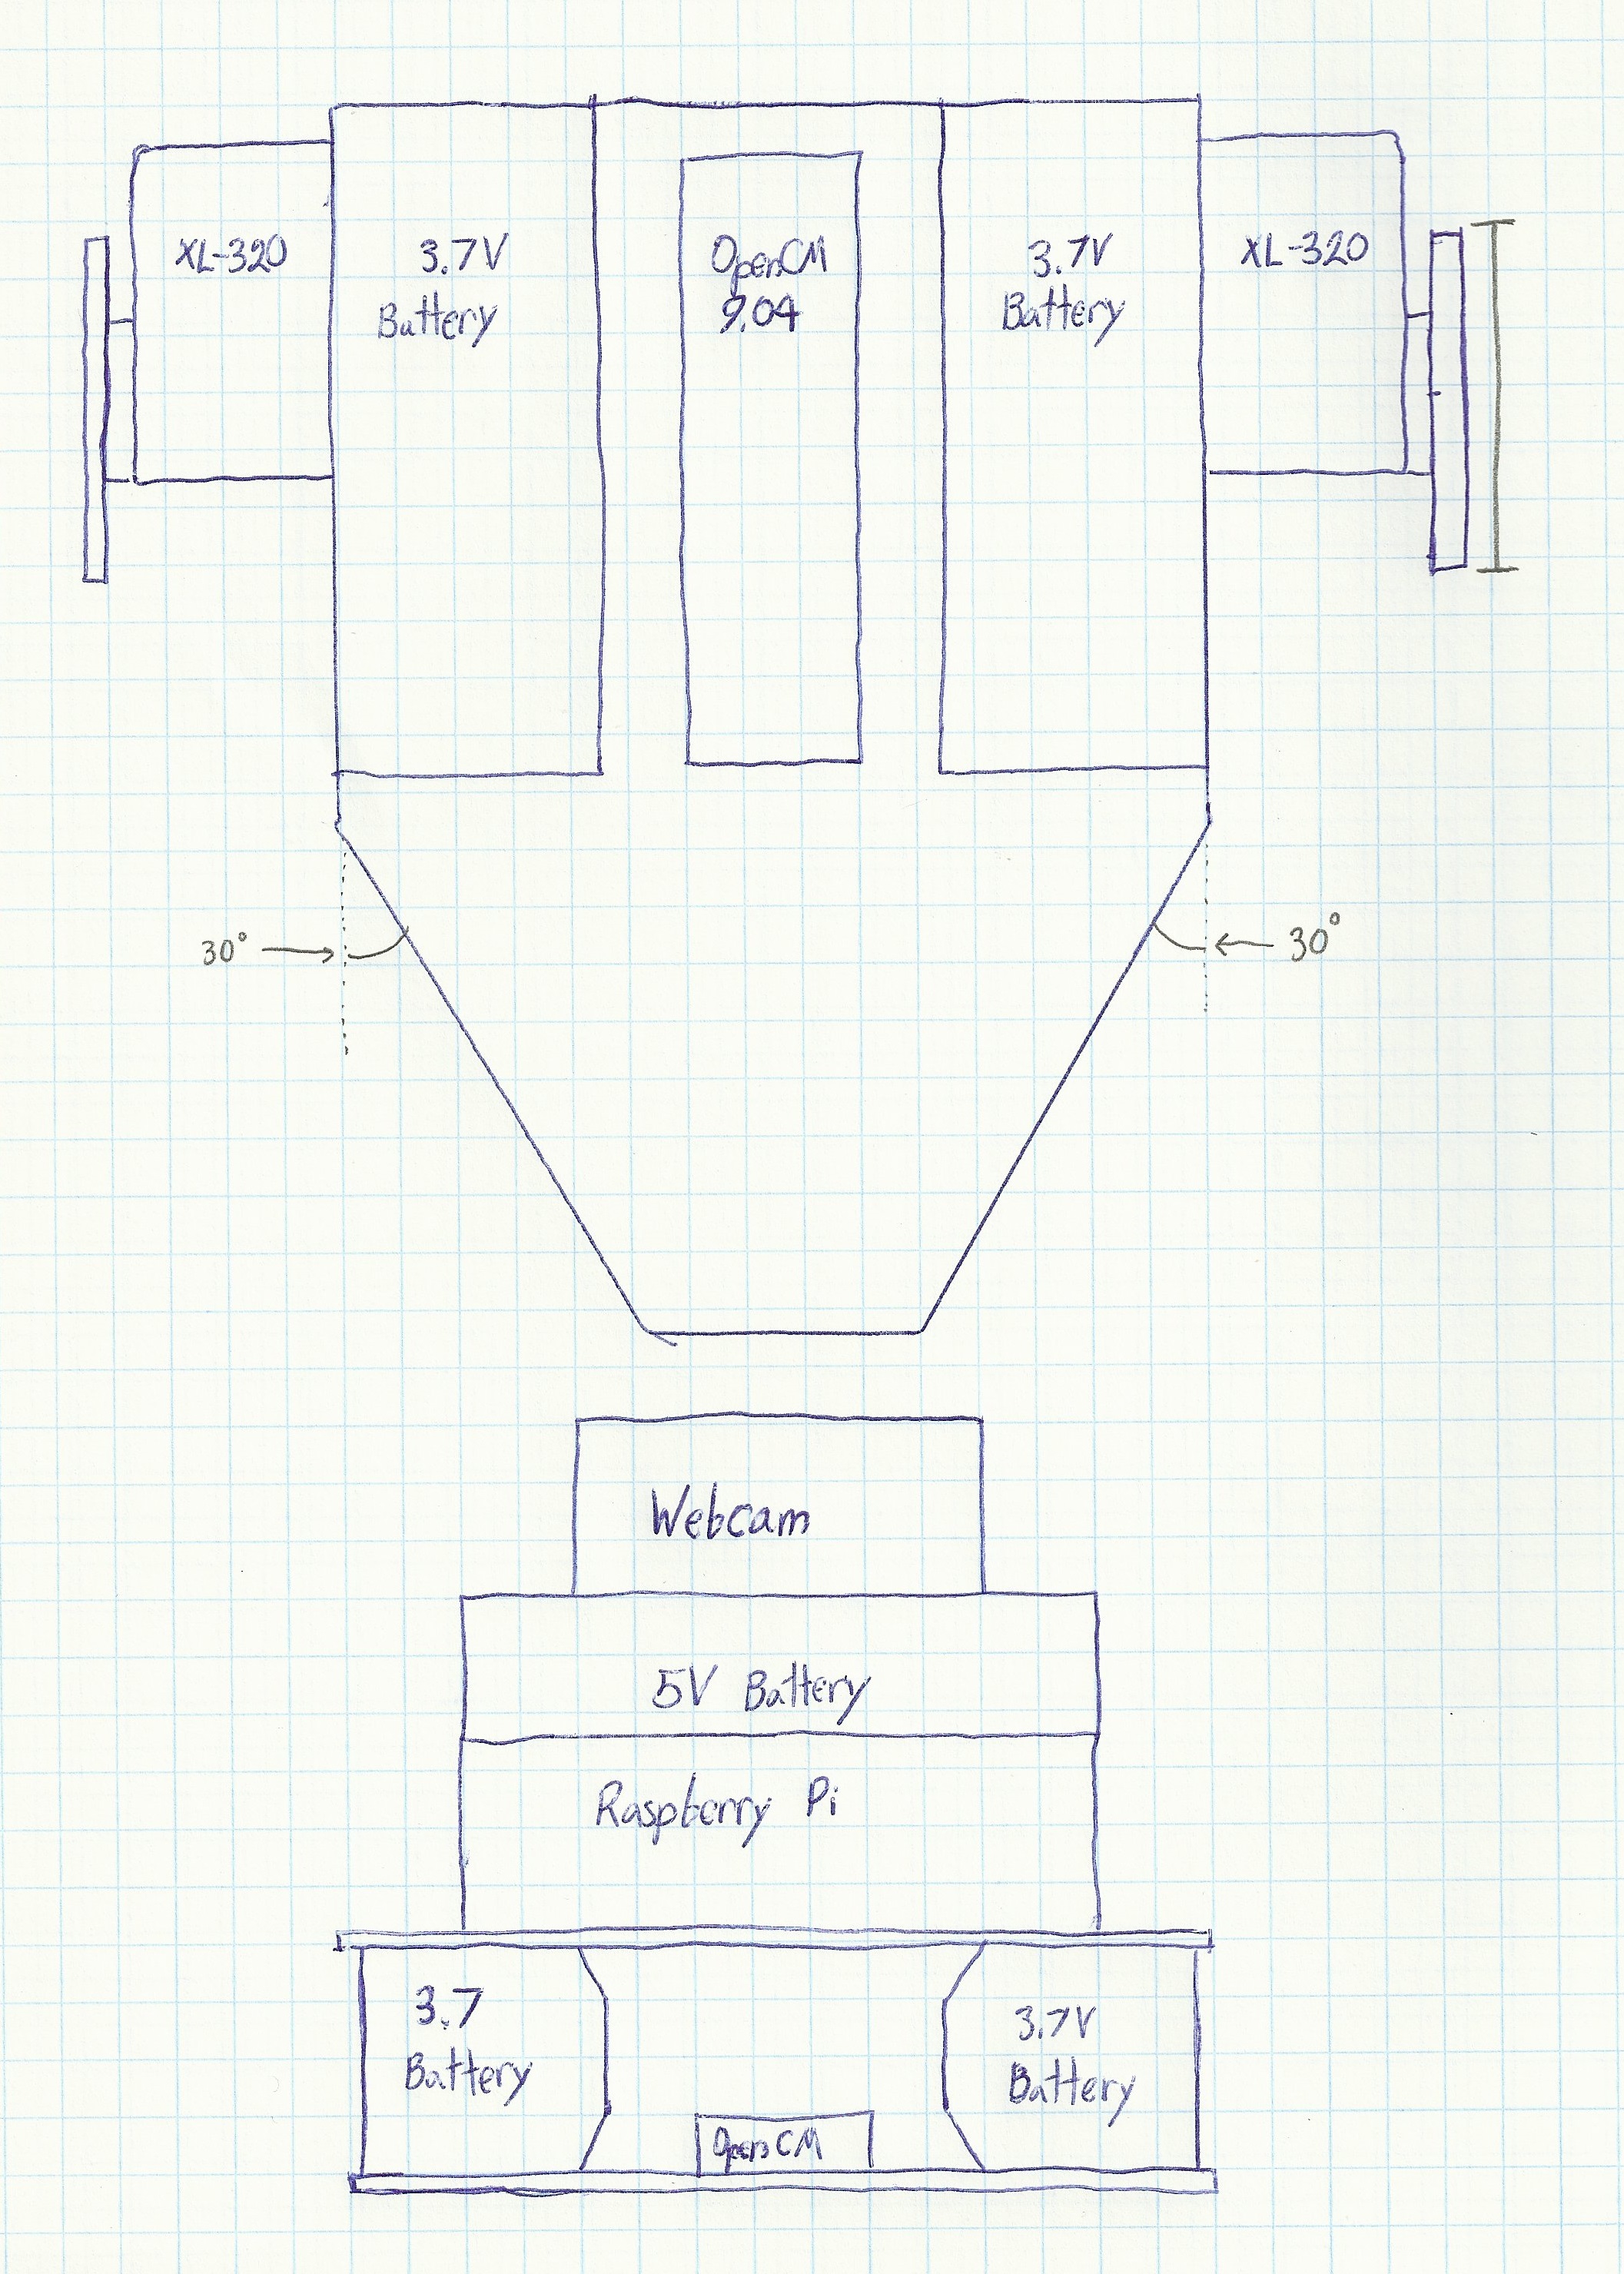 XL-320
3.7V
Battery
OpenCM
9.04
3.7V
Battery
XL-320
30°
30°
Webcam
5V Battery
Raspberry Pi
3.7
Battery
3.7V
Battery
OpenCM